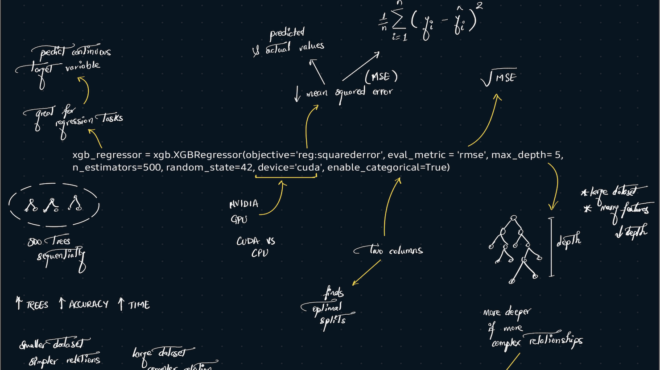 1/n n∑i=1 (yi - ŷi)²
predicted
vs actual values
predict continuous
target variable
(MSE)
↓ mean squared error
√MSE
great for
regression tasks
xgb_regressor = xgb.XGBRegressor(objective='reg:squarederror', eval_metric = 'rmse', max_depth= 5,
n_estimators=500, random_state=42, device='cuda', enable_categorical=True)
* large dataset
* many features
↓ depth
NVIDIA
GPU
CUDA VS
CPU
500 Trees
sequentially
two columns
depth
finds
optimal
splits
↑ TREES ↑ ACCURACY ↑ TIME
more deeper
if more
complex relationships
smaller dataset
simpler relations
large dataset
complex relation